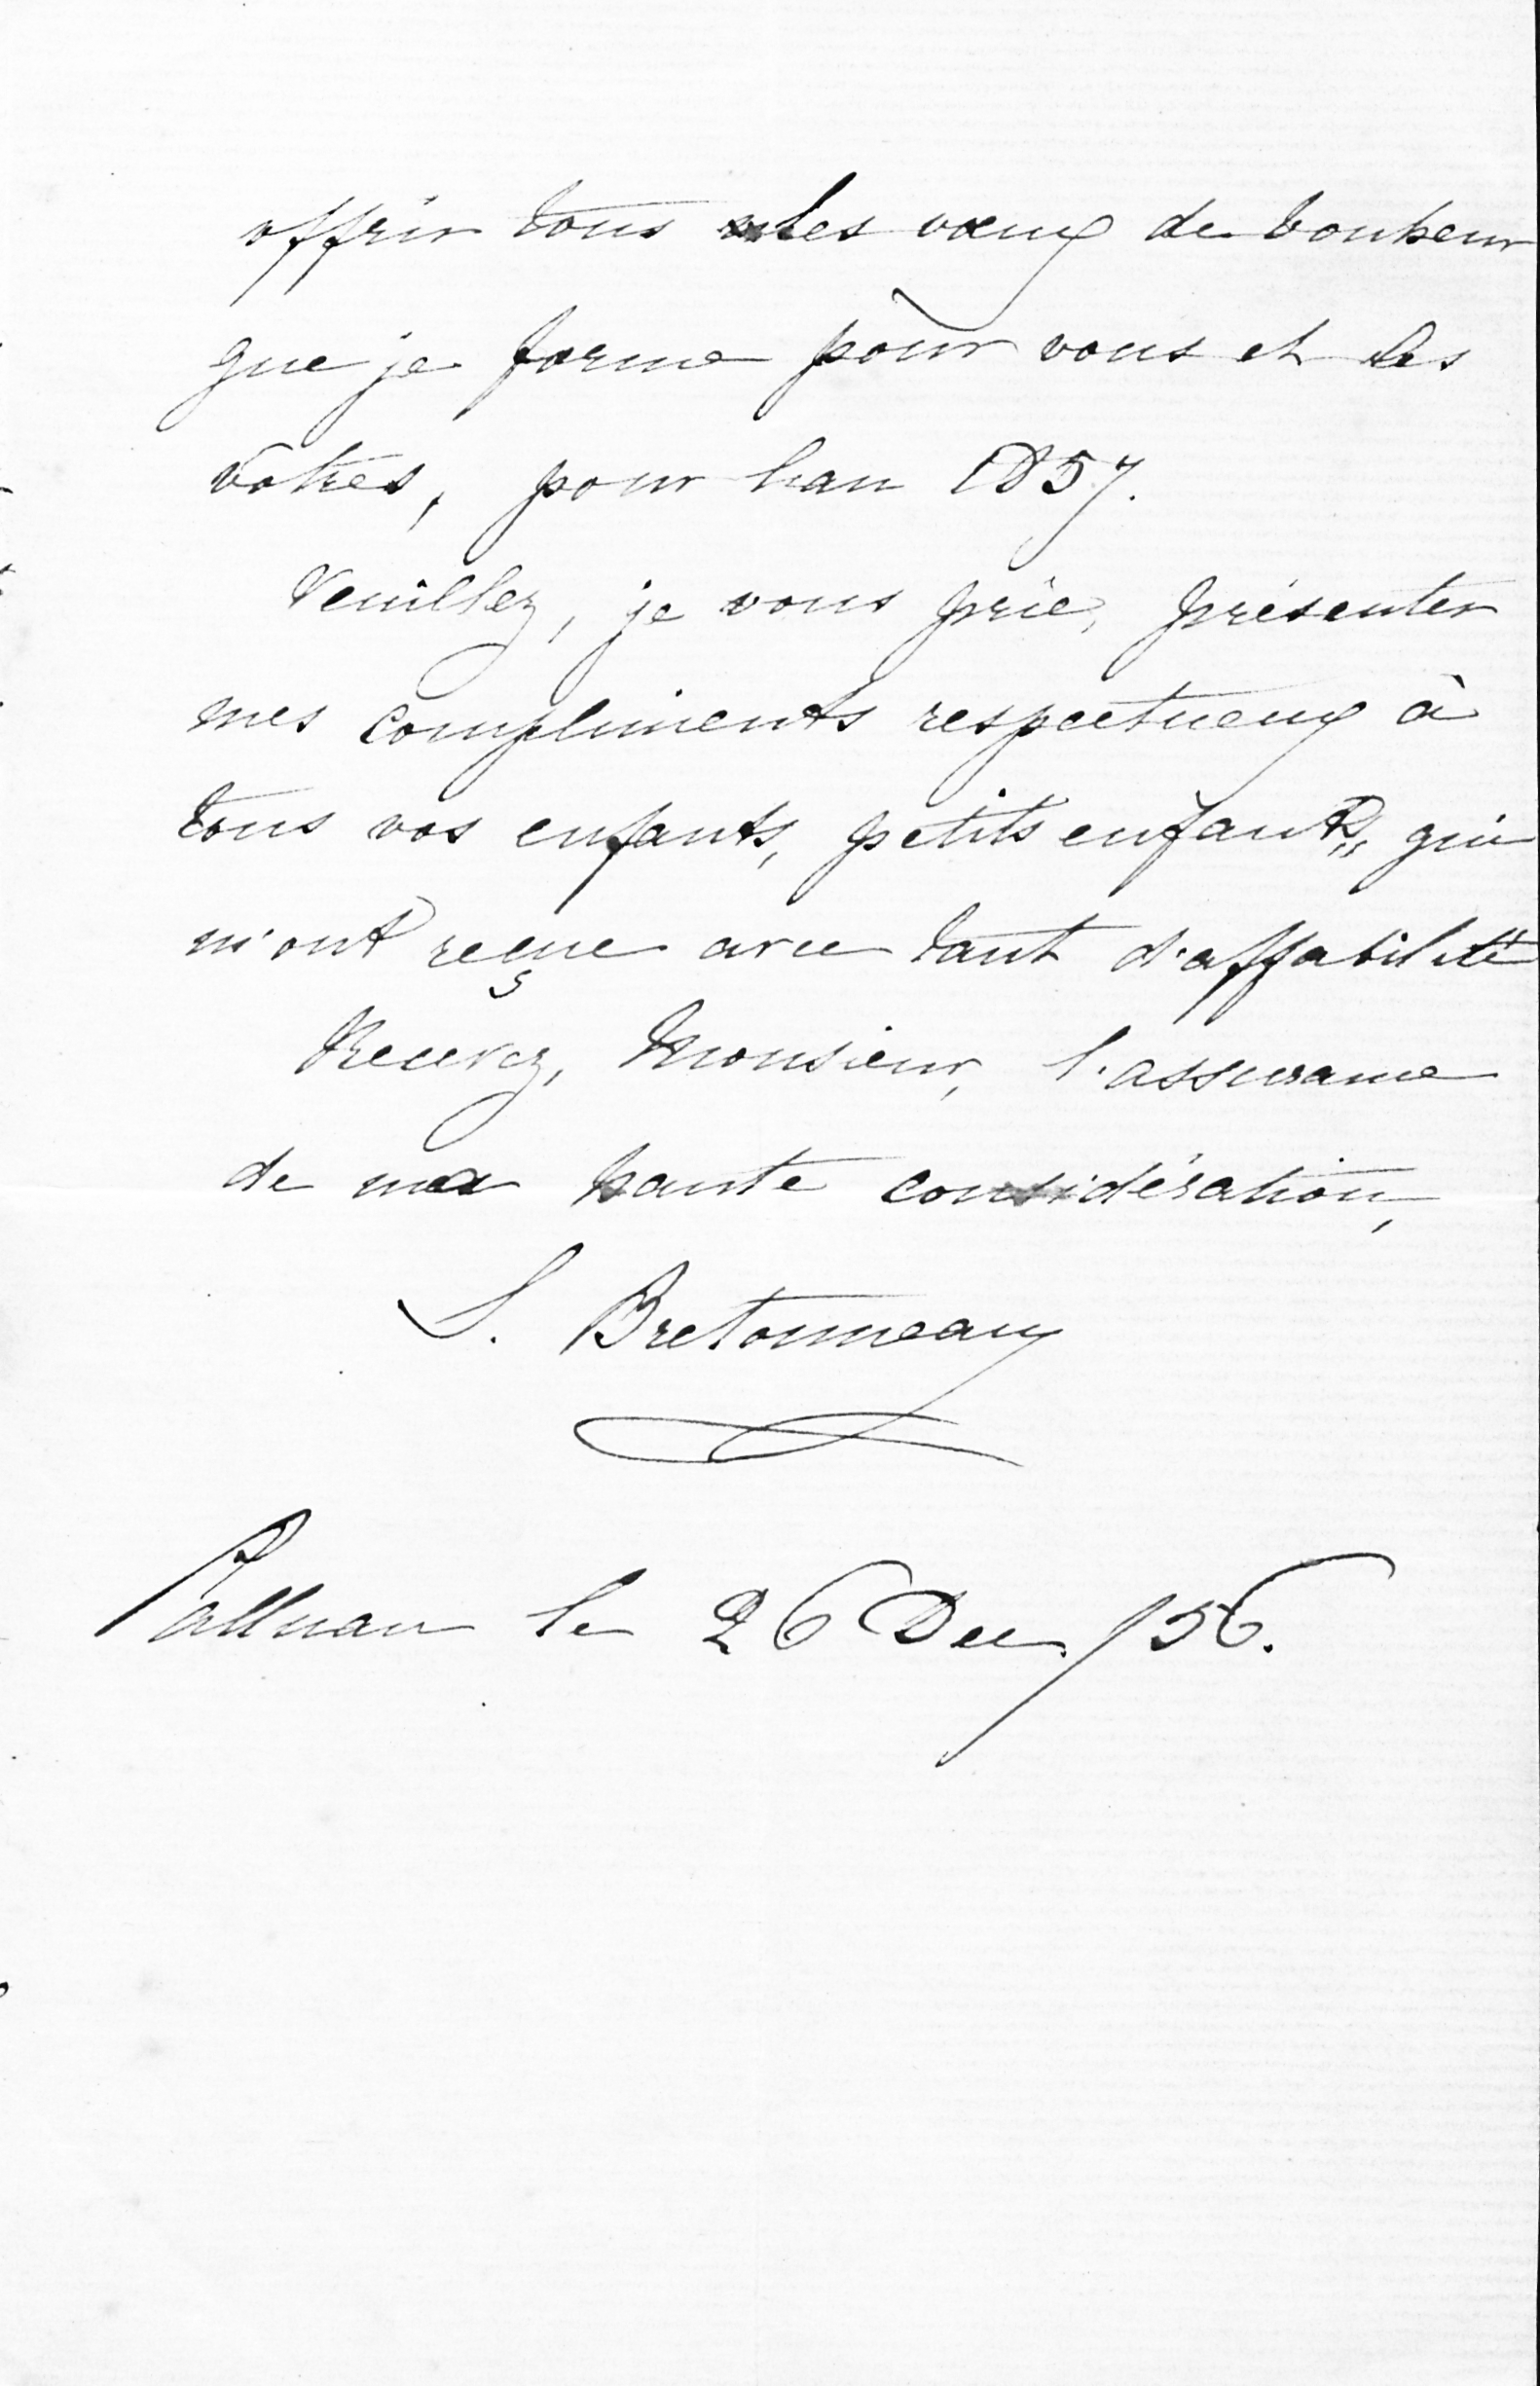 offrir tous les vœux de bonheur
que je forme pour vous et les
vôtres, pour l'an 1857.
Veuillez, je vous prie, présenter
mes compliments respectueux à
tous vos enfants, petits enfants, qui
m'ont reçue avec tant d'affabilité
Recevez, Monsieur, l'assurance
de ma haute considération,
S. Bretonneau
Palluau le 26 Dec. /56.